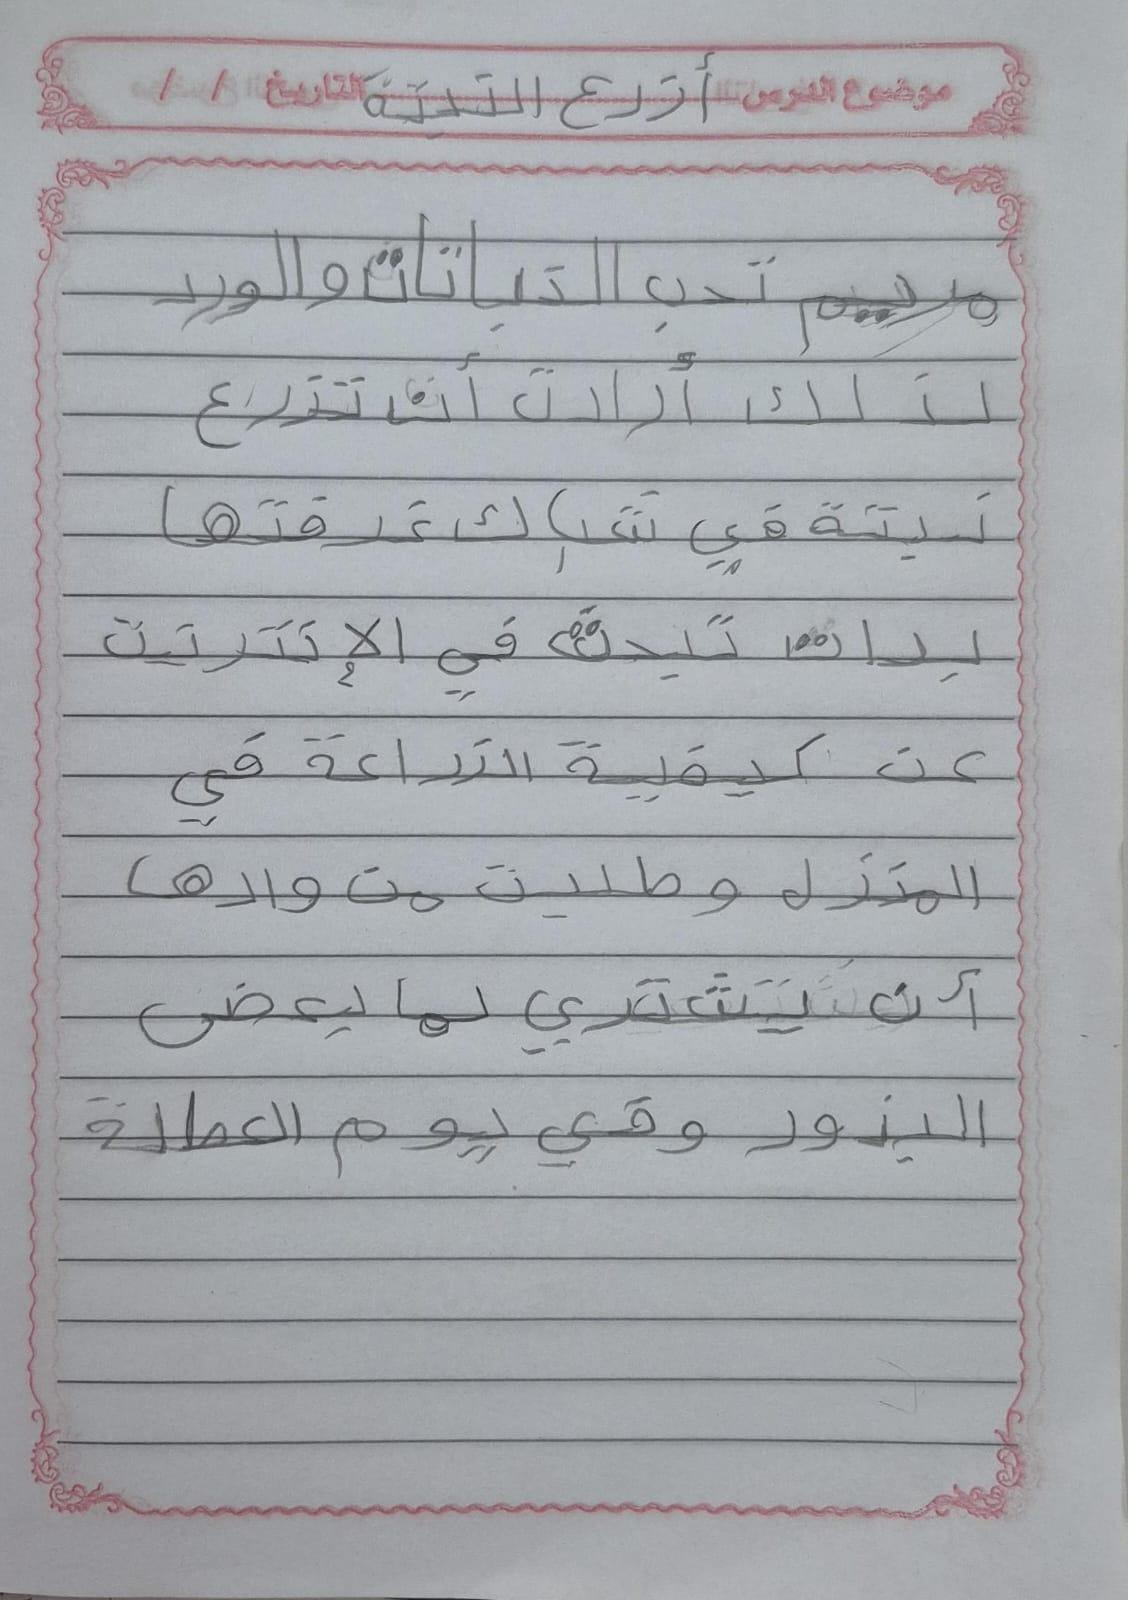 موضوع الدرس أزرع النبتة التاريخ / /
مريم تحب النباتات والورد
لذلك أرادت أن تزرع
نبتة في شباك غرفتها
بدات تبحث في الإنترنت
عن كيفية الزراعة في
المنزل وطلبت من والدها
أن يشتري لها بعض
البذور وفي يوم العطلة